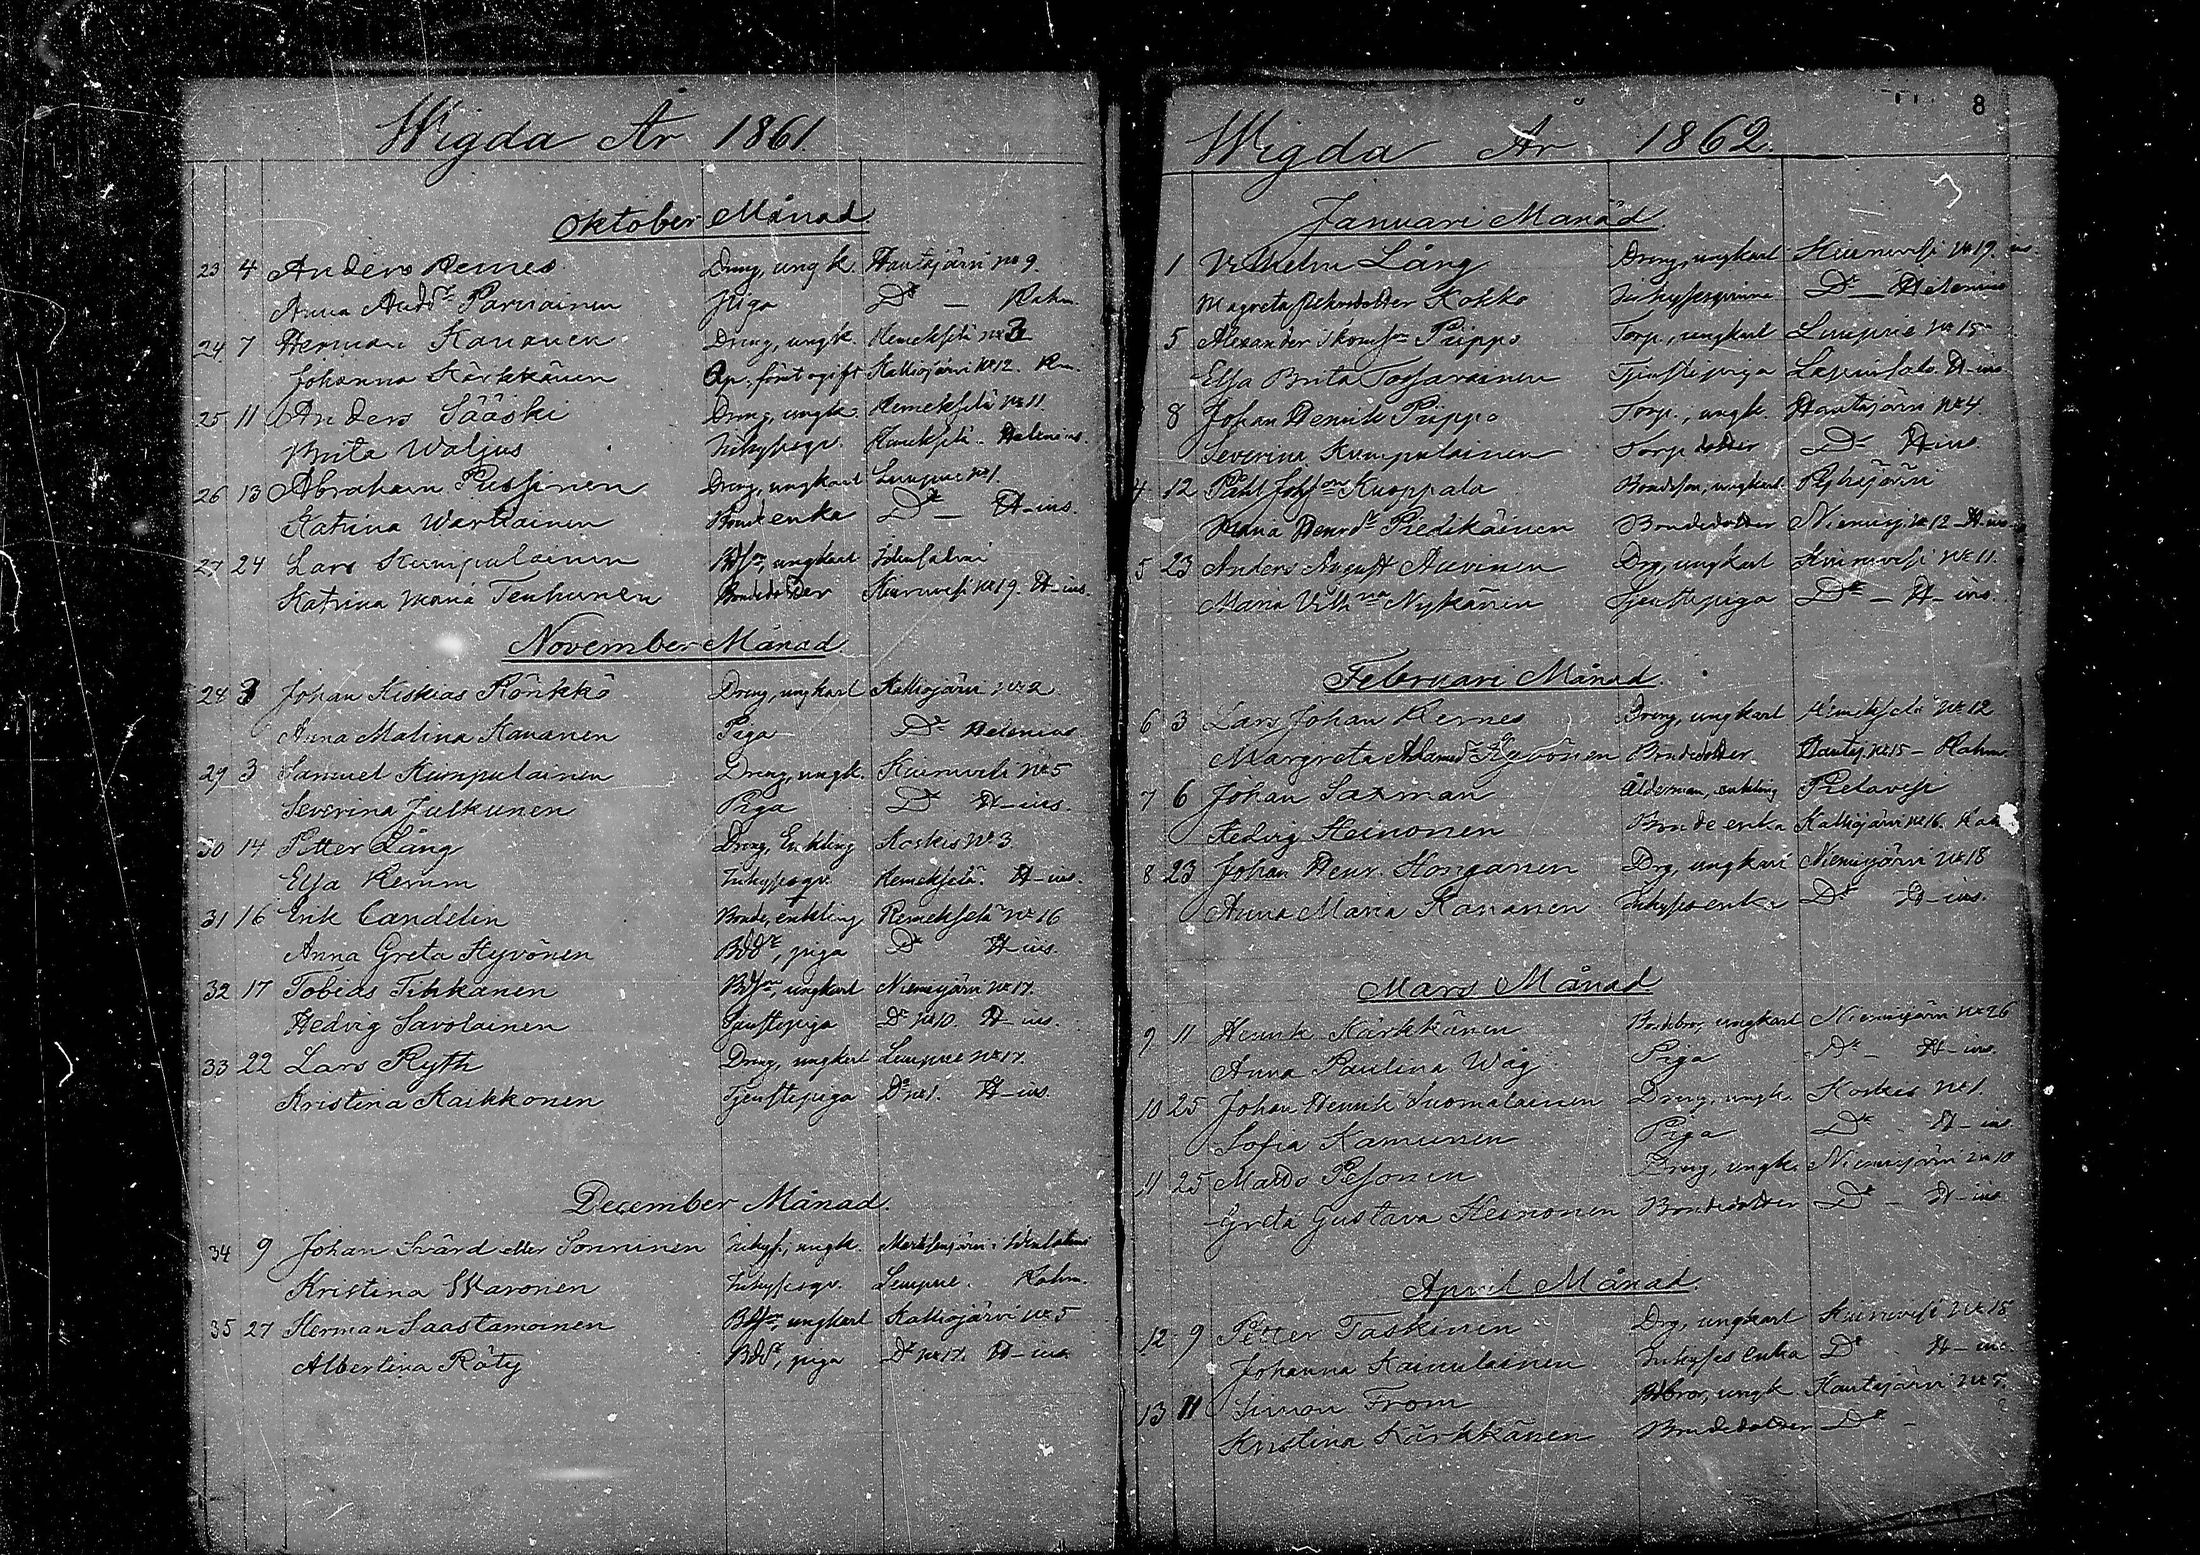 Wigda År 1861.
Oktober Månad
23 4 Anders Remes Dreng, ungk. Hautajärvi № 9.
Anna Andrs dr Parviainen Piga Do — Rahm.
24 7 Herman Kananen Dreng, ungk. Remeksela № 3
Johanna Kärkkänen Kalliojärvi № 12. Rm.
25 11 Anders Sääski Dreng, ungk. Remekselä № 11.
Brita Waljus Inhysesqv. Remekselä. Helenius.
26 13 Abraham Pussinen Dreng, ungkarl № 1.
Katrina Wartiainen Bonde enka Do — H-ius.
27 24 Lars Kumpulainen Bdson, ungkarl Idensalmi
Katrina Maria Tenhunen Bondedotter Kiuruvesi № 19. H-ius.
November Månad
28 3 Johan Kiskias Rönkkö Dreng, ungkarl Kalliojärvi № 2
Anna Malina Kananen Piga Do Helenius
29 3 Samuel Kumpulainen Dreng, ungk. Kiuruvesi № 5
Severina Julkunen Piga Do H-ius.
30 14 Petter Lång Dreng, Enkling Koskis № 3.
Elsa Remm Inhysesqv. Remekselä. H-ius.
31 16 Erik Candelin Bonde, enkling Remekselä № 16
Anna Greta Hyvönen Bddr, piga Do H-ius.
32 17 Tobias Tikkanen Bdson, ungkarl Niemisjärvi № 17.
Hedvig Savolainen Tjenstepiga Do № 10. H-ius.
33 22 Lars Ryth Dreng, ungkarl № 17.
Kristina Kaikkonen Tjenstepiga Do № 1. H-ius.
December Månad.
34 9 Johan Svärd eller Sonninen Inhys., ungk. i Idensalmi
Kristina Waronen Inhysesqv. Rahm.
35 27 Herman Saastamoinen Bdson, ungkarl Kalliojärvi № 5
Albertina Räty Bddr, piga Do № 17. H-ius
8
Wigda År 1862.
Januari Månad.
1 Vilhelm Lång Dreng, ungkarl Kiuruvesi № 19.
Magreta Kokko Inhysesqvinna Do — Helenius
5 Alexander Piippo Torp., ungkarl № 15
Elsa Brita Tossavainen Tjenstepiga Lapinsalo. H-ius
8 Johan Henrik Piippo Torp., ungk. Hautajärvi № 4
Severina Kumpulainen Torp dotter Do H-ius.
4 12 Påhl Johson Kuoppala Bondeson, ungkarl Pyhäjärvi
Maria Henrdr Piedikäinen Bondedotter Niemisj. № 12 H-ius
5 23 Anders August Auvinen Drg, ungkarl Kiuruvesi № 11.
Maria Vilhna Nykänen Tjenstepiga Do — H-ius.
Februari Månad.
6 3 Lars Johan Remes Dreng, ungkarl Remekselä № 12
Margreta Adamsdr Hyvönen Bondedotter Hautaj. № 15 — Rahm.
7 6 Johan Saxman Ålderman, enkling Pielavesi
Hedvig Heinonen Bonde enka Kalliojärvi № 16.
8 23 Johan Henr. Honganen Drg, ungkarl Niemisjärvi № 18
Anna Maria Kananen Inhyses enka Do H-ius.
Mars Månad.
9 11 Henrik Kärkkänen Bondebror, ungkarl Niemisjärvi № 26
Anna Paulina Wåg Piga Do — H-ius.
10 25 Johan Henrik Suomalainen Dreng, ungk. Koskis № 1.
Sofia Kamunen Piga Do H-ius
11 25 Mattts Pesonen Dreng, ungk. Niemisjärvi № 10
Greta Gustava Heinonen Bondedotter Do — H-ius
April Månad.
12 9 Petter Taskinen Drg, ungkarl Kiuruvesi № 18
Johanna Kainulainen Inhyses enka Do H-ius
13 11 Simon From Bdbror, ungk Hautajärvi № 7.
Kristina Kärkkänen Bondedotter Do —